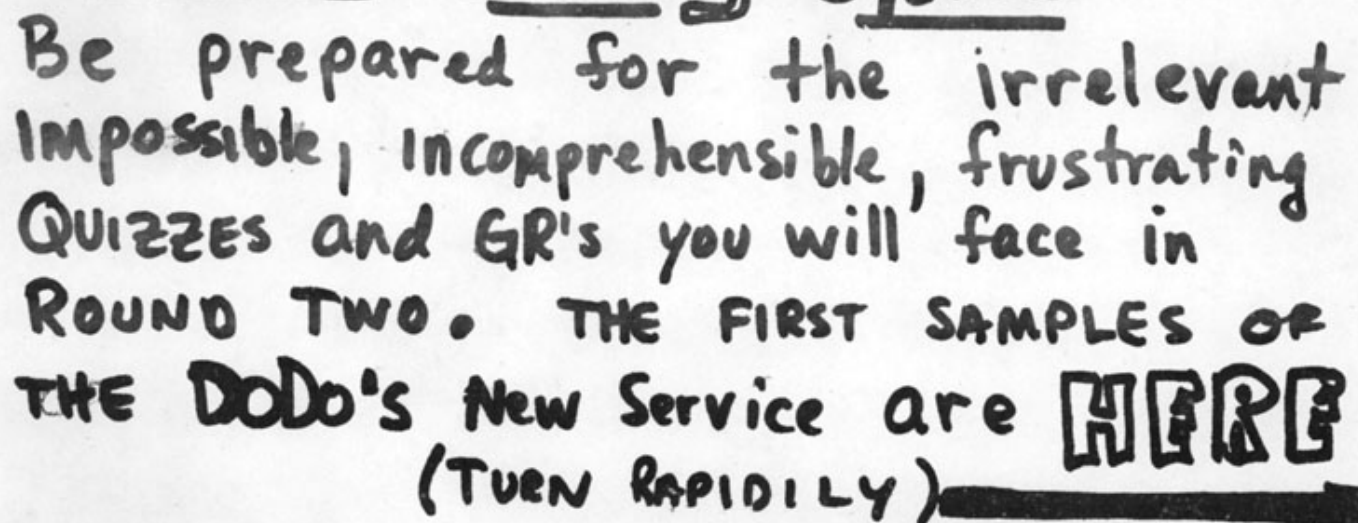 Be prepared for the irrelevant
Impossible, incomprehensible, frustrating
QUIZZES and GR's you will face in
ROUND TWO. THE FIRST SAMPLES OF
THE DODO'S New Service are HERE
(TURN RAPIDILY)